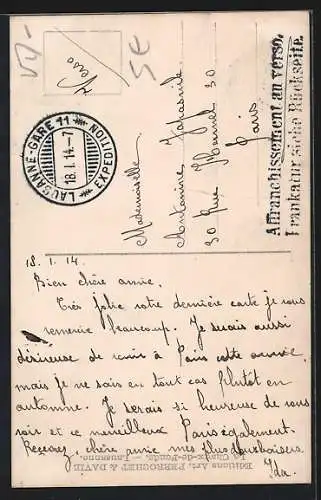 5€
Verso
LAUSANNE-GARE 11
18.I.14.-7
EXPEDITION
Affranchissement au verso.
Frankatur siehe Rückseite.
Mademoiselle
Antonine
30 Rue 30
Paris
18. 1. 14.
Bien chère amie.
Très jolie votre dernière carte je vous
remercie beaucoup. Je serais aussi
désireuse de venir à Paris cette année,
mais je ne sais en tout cas plutôt en
automne. Je serais si heureuse de vous
voir et ce merveilleux Paris également.
Recevez, chère amie mes plus doux baisers.
Ida.
Editions Art. PERROCHET & DAVID
La Chaux-de-Fonds. — Lausanne.